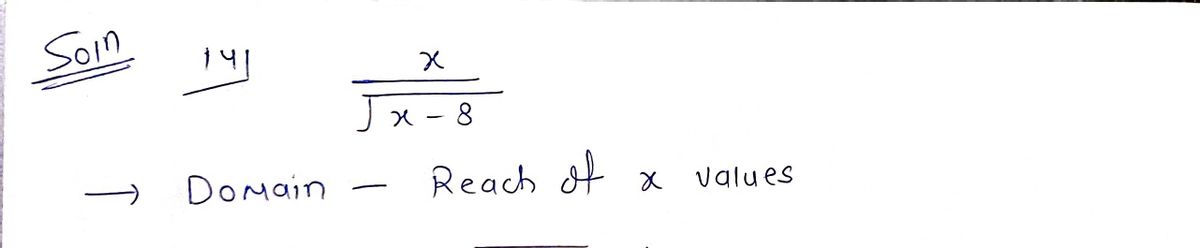 Soln 141 x
√x - 8
→ Domain - Reach of x values